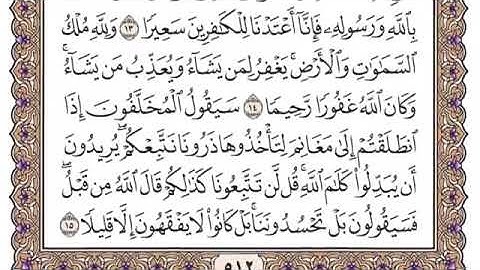 بِٱللَّهِ وَرَسُولِهِۦ فَإِنَّآ أَعْتَدْنَا لِلْكَٰفِرِينَ سَعِيرًا ١٣ وَلِلَّهِ مُلْكُ
ٱلسَّمَٰوَٰتِ وَٱلْأَرْضِۚ يَغْفِرُ لِمَن يَشَآءُ وَيُعَذِّبُ مَن يَشَآءُۚ
وَكَانَ ٱللَّهُ غَفُورًا رَّحِيمًا ١٤ سَيَقُولُ ٱلْمُخَلَّفُونَ إِذَا
ٱنطَلَقْتُمْ إِلَىٰ مَغَانِمَ لِتَأْخُذُوهَا ذَرُونَا نَتَّبِعْكُمْۖ يُرِيدُونَ
أَن يُبَدِّلُوا۟ كَلَٰمَ ٱللَّهِۚ قُل لَّن تَتَّبِعُونَا كَذَٰلِكُمْ قَالَ ٱللَّهُ مِن قَبْلُۖ
فَسَيَقُولُونَ بَلْ تَحْسُدُونَنَاۚ بَلْ كَانُوا۟ لَا يَفْقَهُونَ إِلَّا قَلِيلًا ١٥
٥١٢